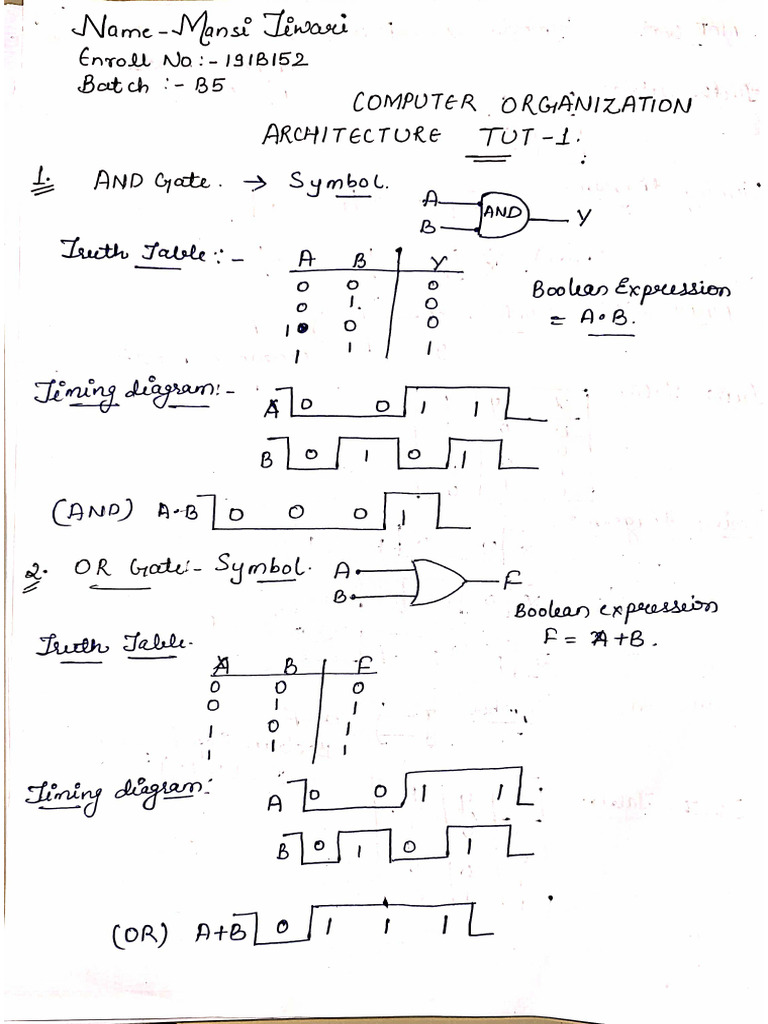 Name - Mansi Tiwari
Enroll No :- 191B152
Batch :- B5
COMPUTER ORGANIZATION
ARCHITECTURE TUT-1.
1. AND Gate. → Symbol.
A
AND
Y
B
Truth Table :-
A B Y
0 0 0
0 1. 0
1 0 0
1 1 1
Boolean Expression
= A.B.
Timing diagram:-
A 0 0 1 1
B 0 1 0 1
(AND) A.B 0 0 0 1
2. OR Gate:- Symbol.
A
F
B
Boolean expression
F = A+B.
Truth Table.
A B F
0 0 0
0 1 1
1 0 1
1 1 1
Timing diagram:
A 0 0 1 1
B 0 1 0 1
(OR) A+B 0 1 1 1